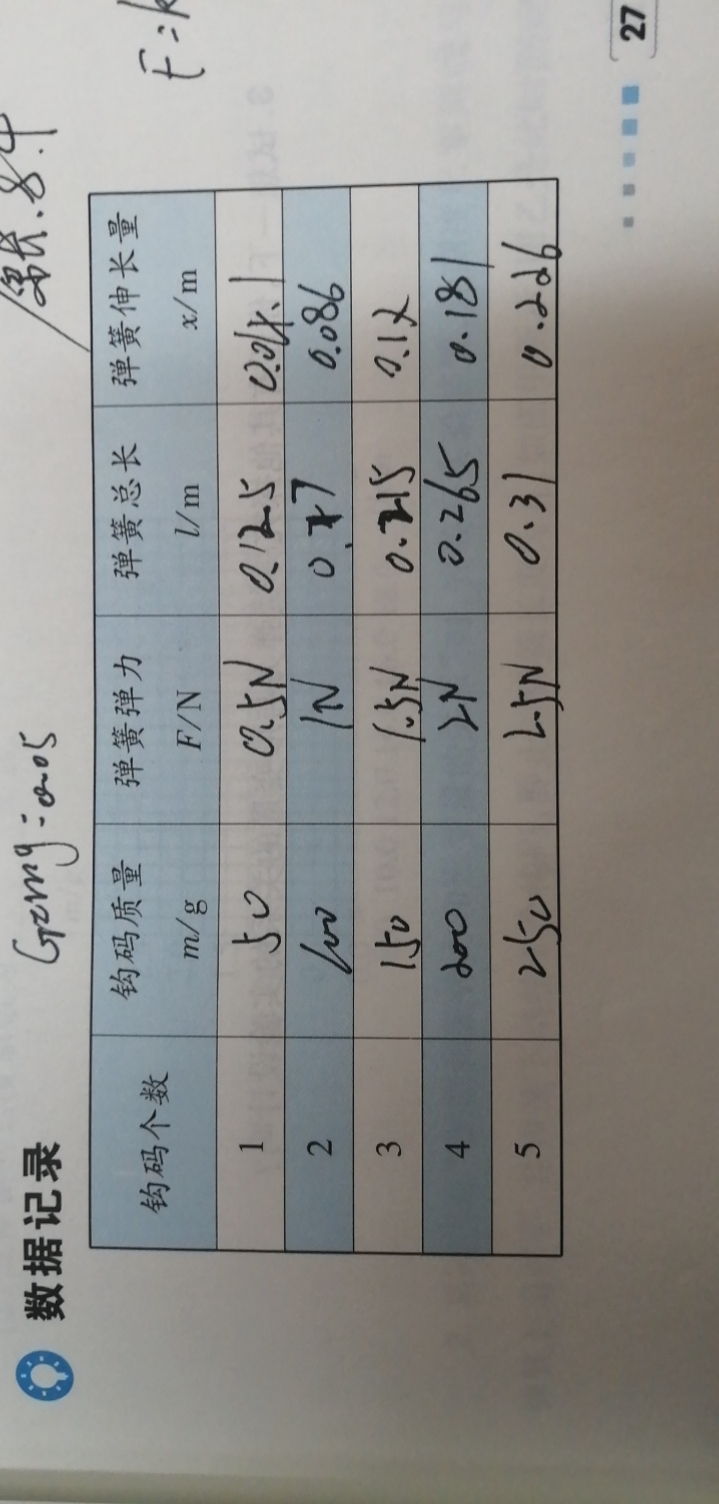 G=mg=0.05
原长.8.4
数据记录
F=k
钩码个数 钩码质量 m/g 弹簧弹力 F/N 弹簧总长 l/m 弹簧伸长量 x/m
1 50 0.5N 0.125
2 100 1N 0.17 0.086
3 150 1.5N 0.215 0.12
4 200 2N 0.265 0.181
5 250 2.5N 0.31 0.226
27